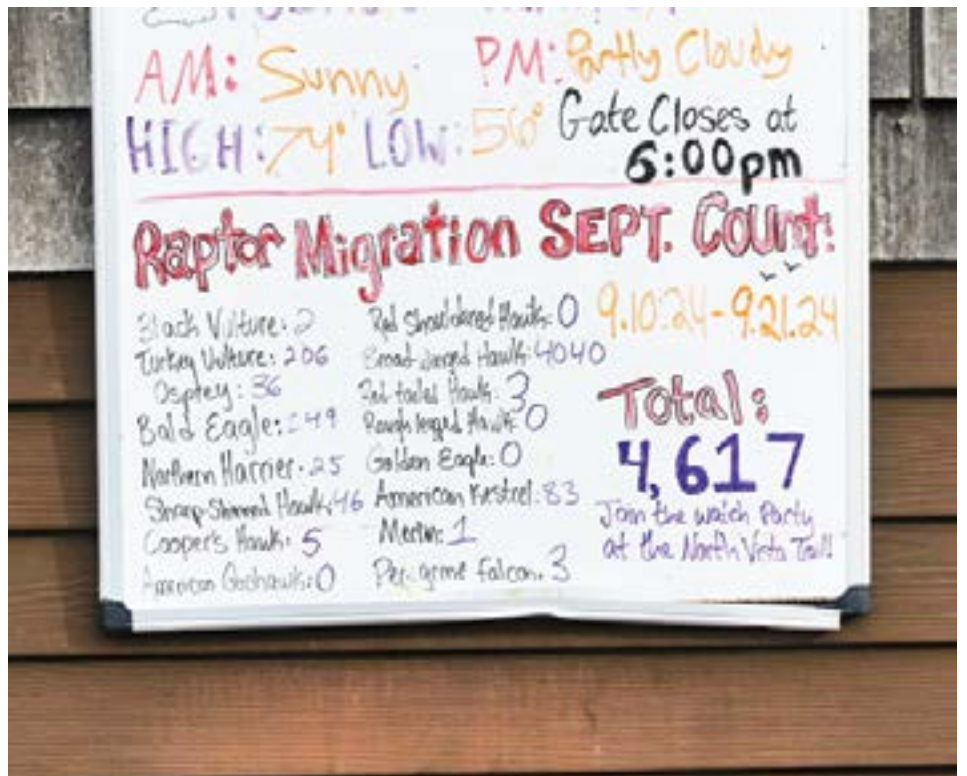 AM: Sunny PM: Partly Cloudy
HIGH: 74° LOW: 56° Gate Closes at
6:00pm
Raptor Migration SEPT. Count:
9.10.24-9.21.24
Black Vulture: 2
Turkey Vulture: 206
Osprey: 36
Bald Eagle: 149
Northern Harrier: 25
Sharp-Shinned Hawk: 46
Cooper's Hawk: 5
American Goshawk: 0
Red Shouldered Hawk: 0
Broad-winged Hawk: 4040
Red-tailed Hawk: 3
Rough legged Hawk: 0
Golden Eagle: 0
American Kestrel: 83
Merlin: 1
Peregrine Falcon: 3
Total:
4,617
Join the watch Party
at the North Vista Trail!